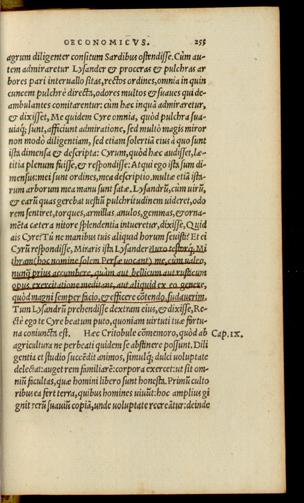 OECONOMICVS. 255
agrum diligenter consitum Sardibus ostendisse. Cùm au-
tem admiraretur Lysander & proceras & pulchras ar
bores pari interuallo sitas, rectos ordines, omnia in quin
cuncem pulchrè directa, odores multos & suaues qui de-
ambulantes comitarentur: cùm hæc inquã admiraretur,
& dixisset, Me quidem Cyre omnia, quòd pulchra sua-
uiaq; sunt, afficiunt admiratione, sed multò magis miror
non modò diligentiam, sed etiam solertiã eius à quo sunt
ista dimensa & descripta: Cyrum, quòd hæc audisset, læ-
titia plenum fuisse, & respondisse: Atqui ego ista sum di
mensus: mei sunt ordines, mea descriptio. multæ etiã ista-
rum arborum mea manu sunt satæ. Lysandrũ, cùm uirũ,
& earũ quas gerebat uestiũ pulchritudinem uideret, odo
rem sentiret, torques, armillas, anulos, gemmas, & orna-
mēta cætera nitore splendentia intueretur, dixisse, Quid
ais Cyre? Tu ne manibus tuis aliquid horum seuisti? Et
Cyrũ respondisse, Miraris ista Lysander? iuro testorq; Mi
thram (hoc nomine solem Persæ uocant) me, cùm ualeo,
nunq̃ prius accumbere, quàm aut bellicum aut rusticum
opus, exercitatione meditans, aut aliquid ex eo genere,
quòd magni semper facio, & efficere cōtendo, sudauerim.
Tum Lysandrũ prehendisse dextram eius, & dixisse, Re-
ctè ego te Cyre beatum puto, quoniam uirtuti tuæ fortu-
na coniuncta est. Hæc Critobule cōmemoro, quòd ab Cap. IX.
agricultura ne perbeati quidem se abstinere possunt. Dili
gentia et studio succedit animos, simulq; dulci uoluptate
delectat: auget rem familiarē: corpora exercet: ut sit om-
niũ facultas, quæ homini libero sunt honesta. Primũ culto
ribus ea fert terra, quibus homines uiuũt: hoc amplius gi
gnit rerũ suauiũ copiã, unde uoluptate recreãtur: deinde